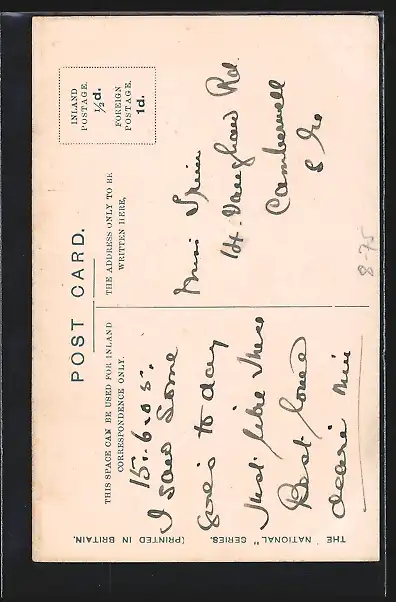 POST CARD.
THIS SPACE CAN BE USED FOR INLAND
CORRESPONDENCE ONLY.
THE ADDRESS ONLY TO BE
WRITTEN HERE,
INLAND
POSTAGE.
½d.
FOREIGN
POSTAGE.
1d.
15.6.05.
I saw some
to day
Just like these
Best Love
Miss
14. Vaughan Rd.
Camberwell
8-75
THE "NATIONAL" SERIES.
(PRINTED IN BRITAIN.